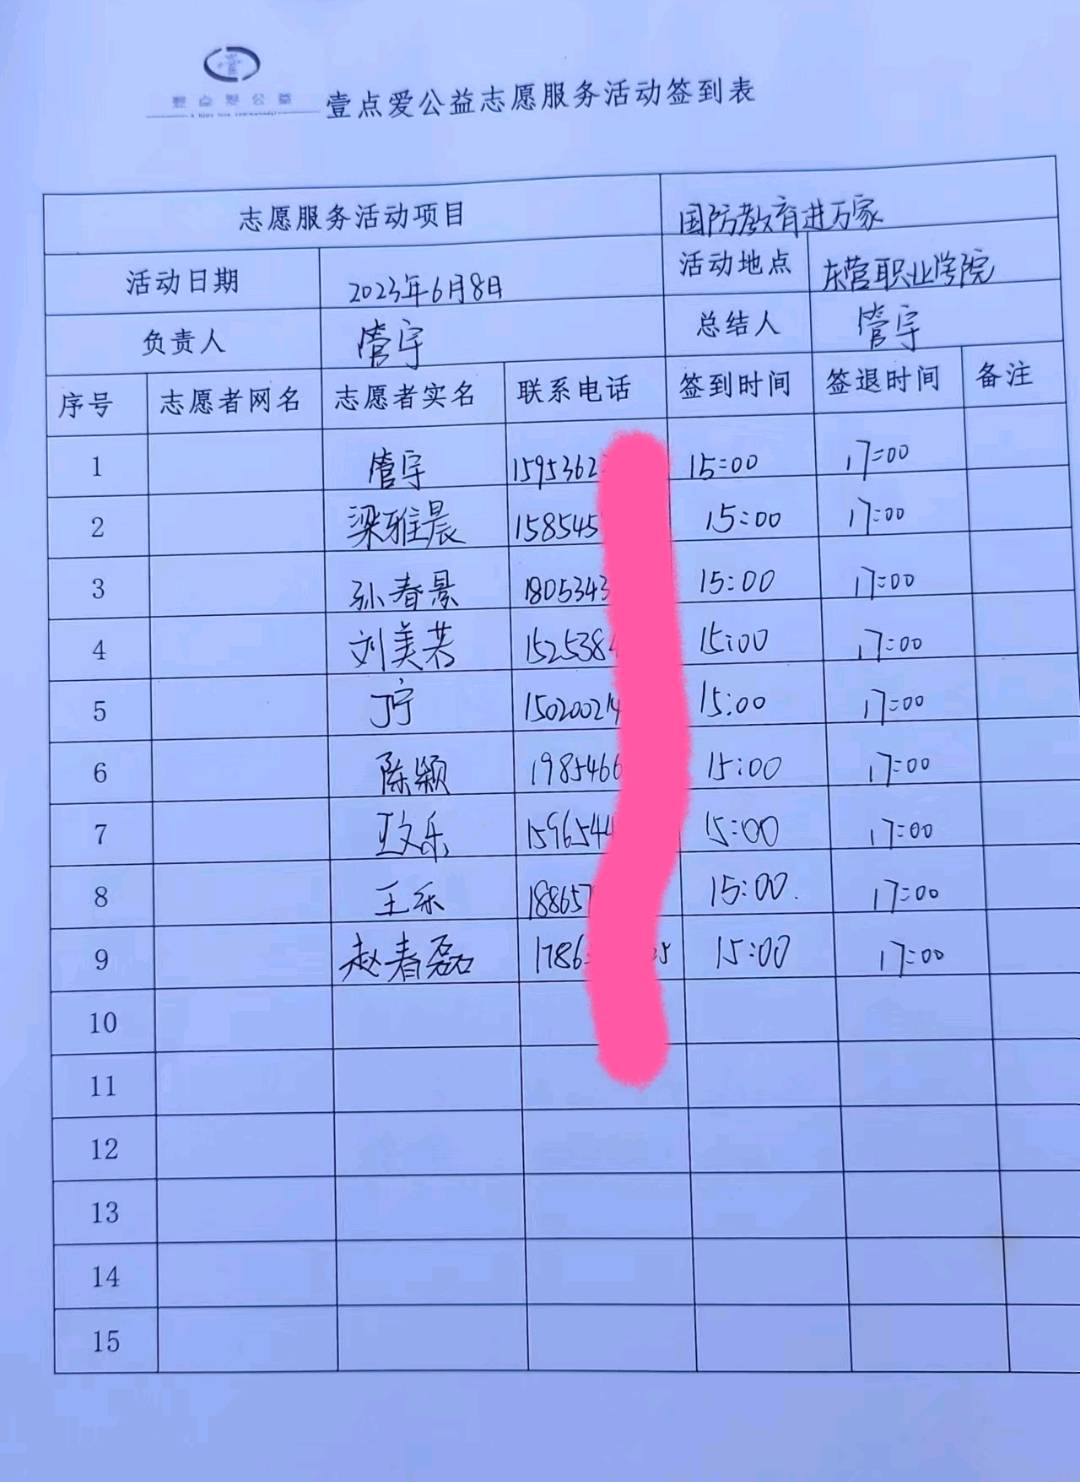 壹点爱公益
壹点爱公益志愿服务活动签到表
志愿服务活动项目 国防教育进万家
活动日期 2023年6月8日 活动地点 东营职业学院
负责人 管宇 总结人 管宇
序号 志愿者网名 志愿者实名 联系电话 签到时间 签退时间 备注
1 管宇 1595362 15:00 17:00
2 梁雅晨 158545 15:00 17:00
3 孙春景 1805343 15:00 17:00
4 刘美若 1525384 15:00 17:00
5 丁宁 15020024 15:00 17:00
6 陈颖 1985466 15:00 17:00
7 王文乐 1596544 15:00 17:00
8 王乐 18865 15:00 17:00
9 赵春磊 1786 5 15:00 17:00
10
11
12
13
14
15